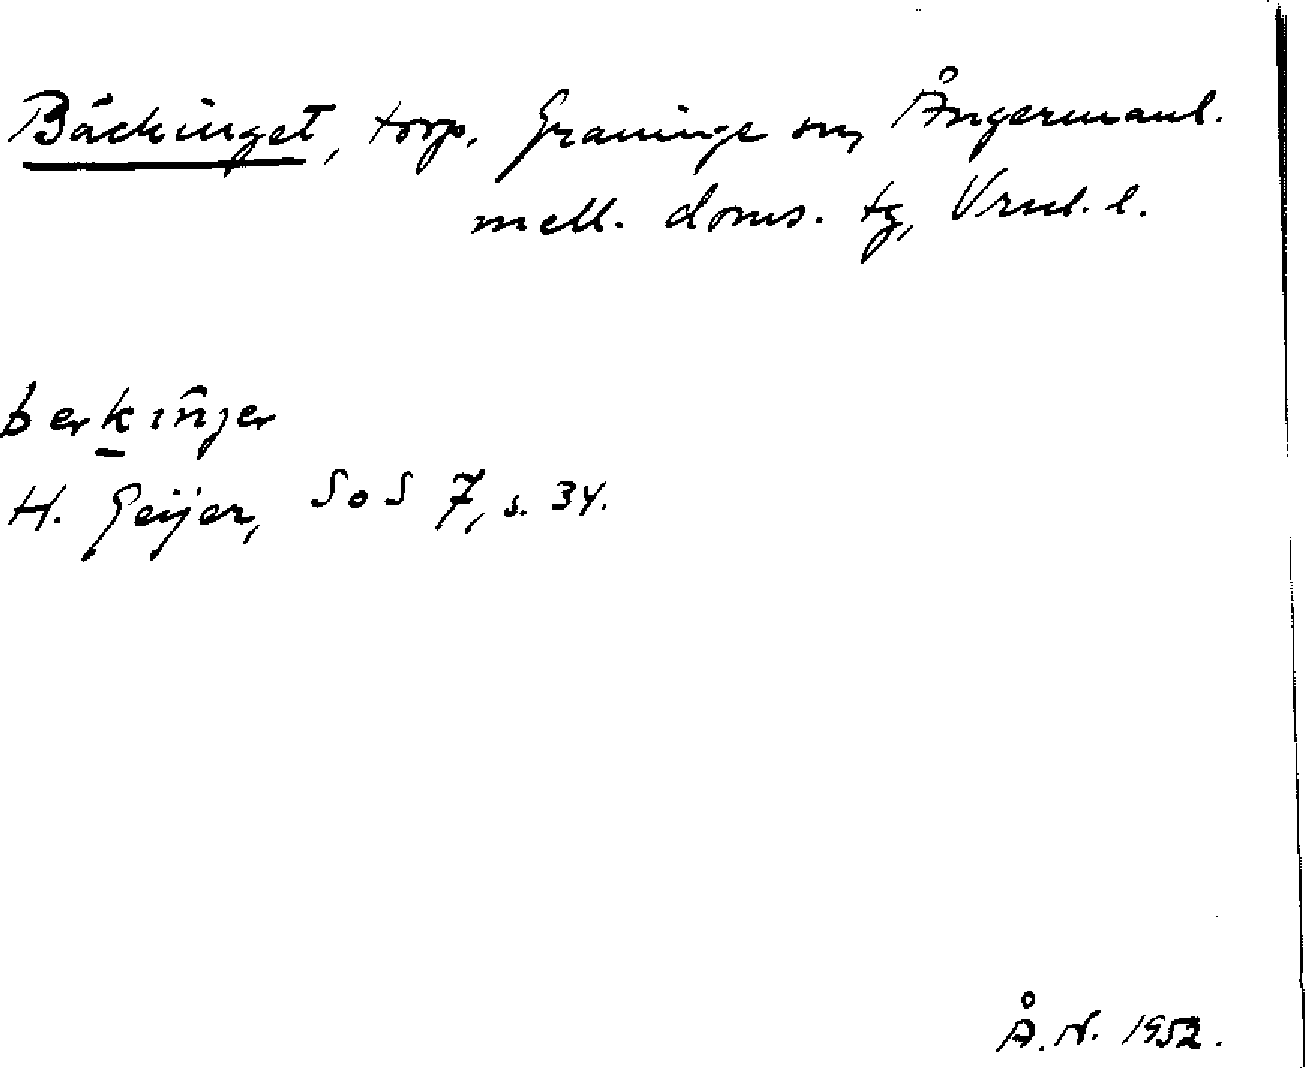 Bäckinget, torp. Graninge sn, Ångermanl.
mell. doms. tg, Vrnl. l.
berkinjer
H. Geijer, SoS 7, s. 34.
Å. N. 1952.